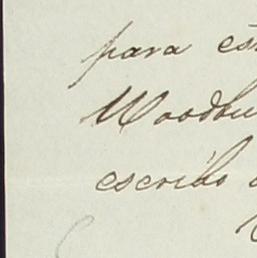 para és
Woodbu
escribo